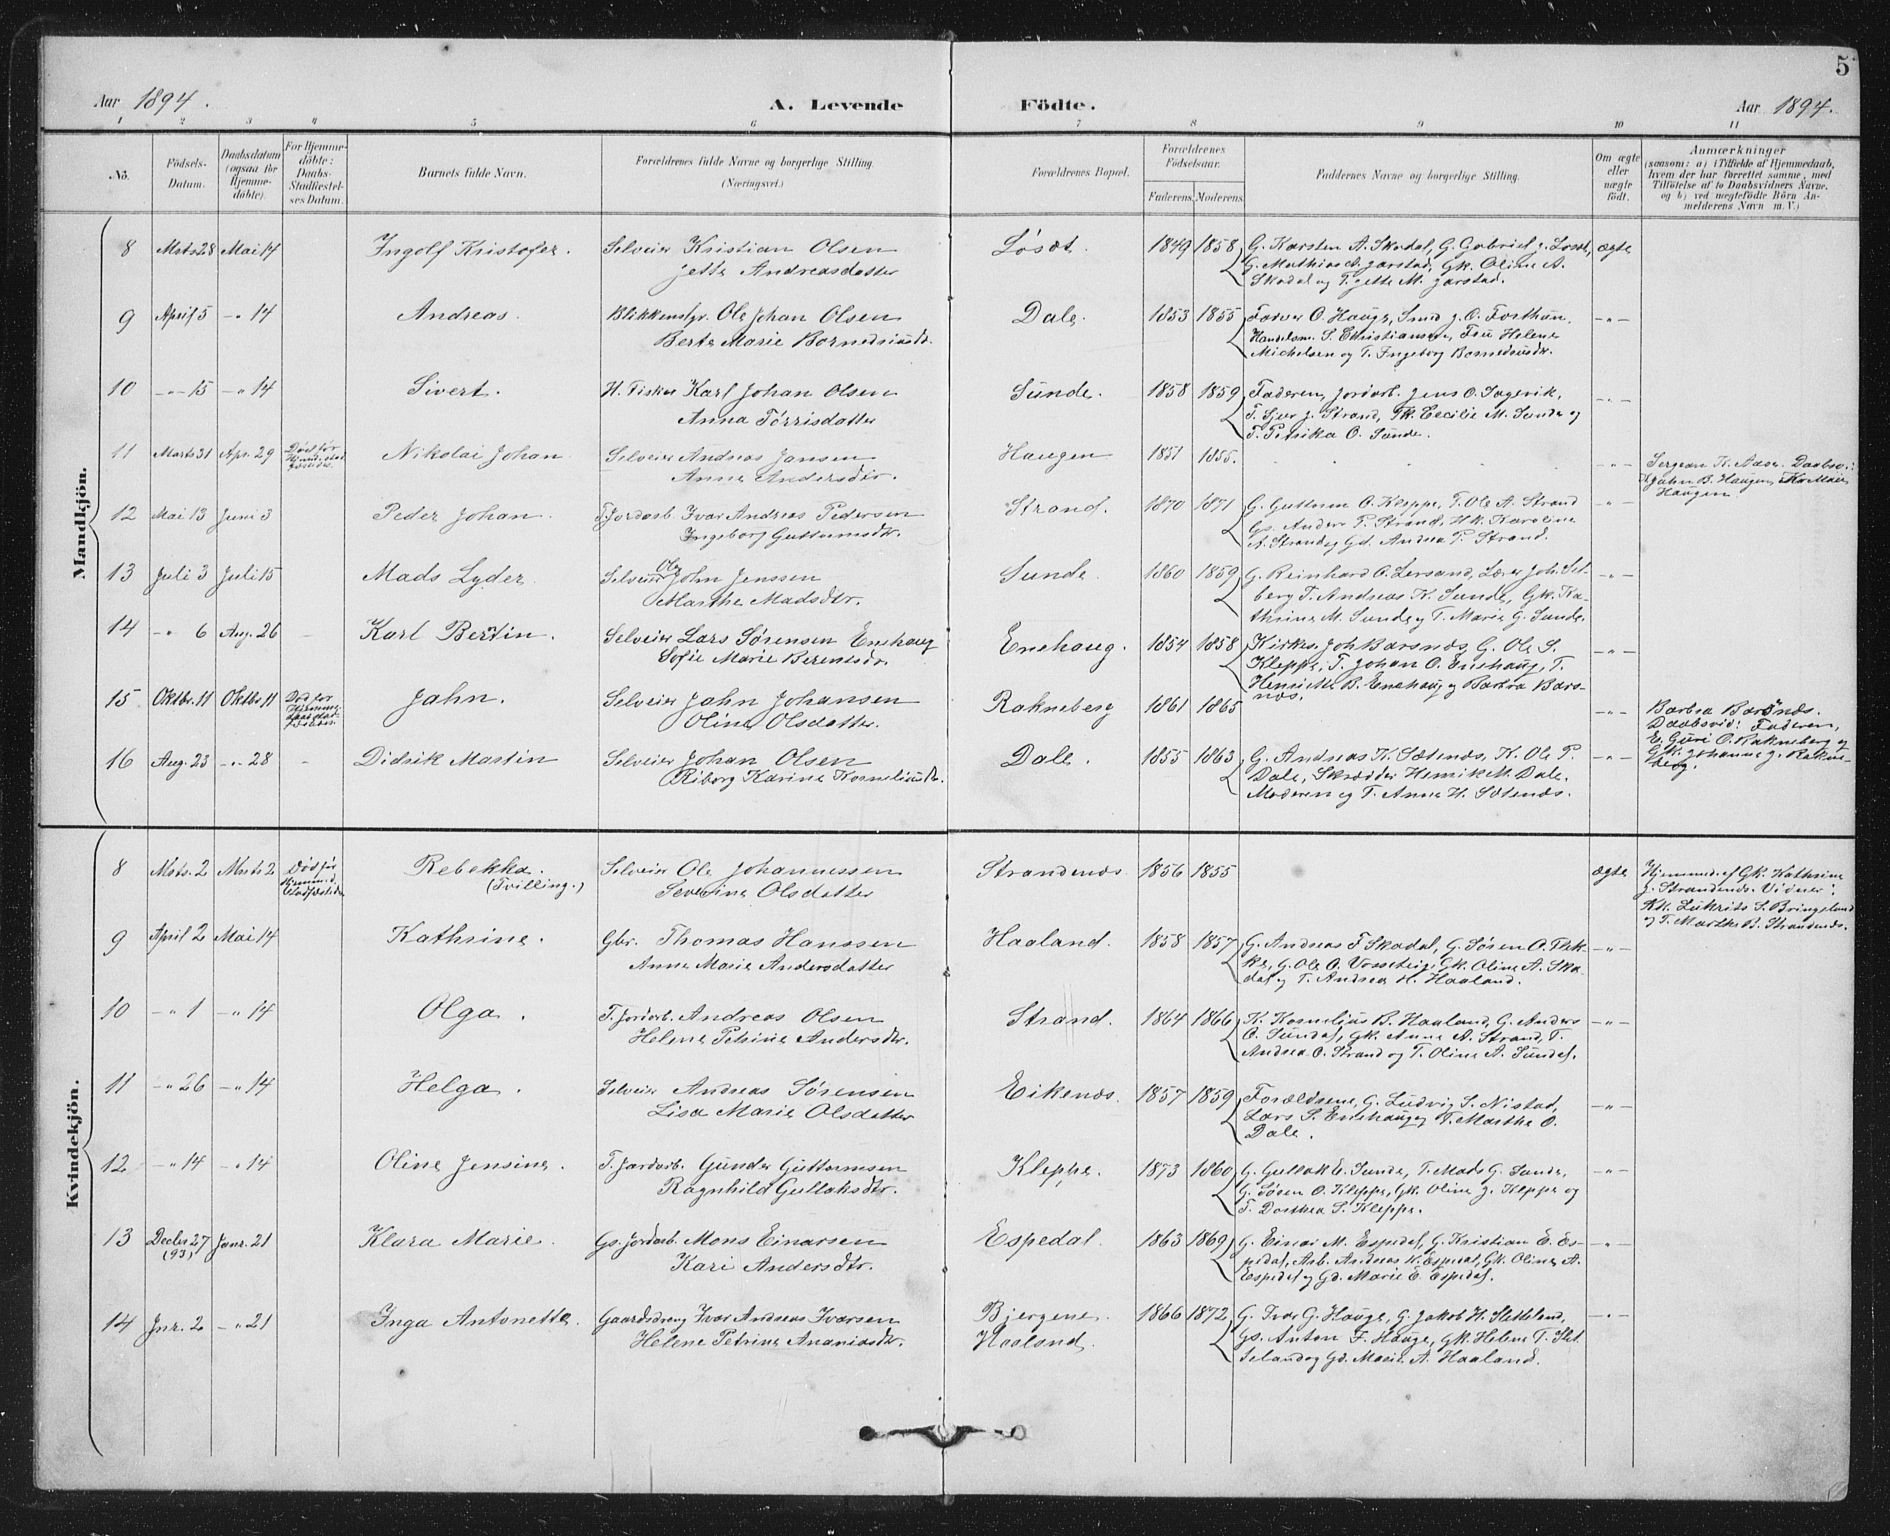 5
Aar 1894.
A. Levende
Födte.
Aar 1894.
1 2 3 4 5 6 7 8 9 10 11
No.
Födsels-
Datum.
Daabsdatum
(ogsaa for
Hjemme-
döbte).
For Hjemme-
döbte:
Daabs-
Stadfæstel-
ses Datum.
Barnets fulde Navn.
Forældrenes fulde Navne og borgerlige Stilling.
(Næringsvei.)
Forældrenes Bopæl.
Forældrenes
Födselsaar.
Faderens Moderens
Faddernes Navne og borgerlige Stilling.
Om ægte
eller
uægte
født.
Anmærkninger
(saasom: a) i Tilfælde af Hjemmedaab,
hvem der har forrettet samme, med
Tilföielse af to Daabsvidners Navne,
og b) ved uægtefødte Börn An-
melderens Navn m. V.)
Mandkjön.
8 Mrts 28 Mai 14 Ingolf Kristofer. Selveier Kristian Olsen Løset 1849 1858 G. Karsten A. Skadal, G. Gabriel J. Løset, ægte
Jette Andreasdatter G. Mathias A. Jarstad, Gk. Oline A.
Skadal og P. Jette M. Jarstad.
9 April 5 -"- 14 Andreas. Blikkensl. Ole Johan Olsen Dale. 1853 1855 Farver O. Hauge, Smed J. O. Forthun, -"-
Berte Marie Handelsm. S. Christiansen, Fru Helene
Michelsen og P. Ingeborg
10 -"- 15 -"- 14 Sivert. H. Fisker Karl Johan Olsen Sunde. 1858 1859 Faderen, Jordarb. Jens O. Sagevik, -"-
Anna Tørrisdatter Strand, Gk. Cecilie M. Sunde og
P. Petrika O. Sunde.
11 Marts 31 Apr. 29 Død før Nikolai Johan Selveier Andreas Jansen Haugen 1851 1855. -"- Sergeant K. Aase. Daabsv.:
Anne Andersdtr. John B. Haugen,
Haugen.
12 Mai 13 Juni 3 Peder Johan. Ivar Andreas Pedersen Strand. 1870 1871 G. Guttorm O. Kleppe, T. Ole A. Strand -"-
Ingeborg Guttormsdtr. Gs. Anders P. Strand, Hk. Karoline
A. Strand og Gd. Andrea P. Strand.
13 Juli 3 Juli 15 Mads Lyder Selveier Ole John Jenssen Sunde. 1860 1859 G. Reinhard O. Lersand, Lærer Joh. Set- -"-
Marthe Madsdtr. berg T. Andreas K. Sunde, Gk. Ka-
thrine M. Sunde og T. Marie G. Sunde.
14 -"- 6 Aug. 26 - Karl Berntin. Selveier Lars Sørensen Enehaug Enehaug. 1854 1858 Kirkes. Joh Barsnæs, G. Ole S. -"-
Sofie Marie Berentsdtr. Kleppe, T. Johan O. Enehaug, T.
Henriette B. Enehaug og Barbra Bars-
næs.
15 Oktbr. 11 Oktbr. 11 Død før Jahn. Selveier Jahn Johansen Rakneberg 1861 1865 -"- Barbra Barsnæs.
Oline Olsdatter. Daabsvid: Faderen,
E. Guri O. Rakneberg og
Gk. Johanne J. Rakne-
berg.
16 Aug. 23 -"- 28 - Didrik Martin Selveier Johan Olsen Dale. 1855 1863 G. Andreas K. Sætenæs, K. Ole P. -"-
Riborg Karine Korneliusdtr. Dale, Skrædder Henrik M. Dale.
Moderen og T. Anne H. Sætenæs.
Kvindekjön.
8 Mrts. 2 Mrts 2 Død før Rebekka. Selveier Ole Johannessen Strandenæs 1856 1855 ægte Hjemmed. af Gk. Kathrine
(Tvilling.) Severine Olsdatter J. Strandenæs. Vidner:
Kk. Lukrits S. Bringeland
og T. Marthe B. Strandenæs.
9 April 2 Mai 14 Kathrine. Gbr. Thomas Hanssen Haaland. 1858 1857 G. Andreas F. Skadal, G. Søren O. Flek- -"-
Anne Marie Andersdatter ke, G. Ole O. Gk. Oline A. Ska-
dal og T. Andrea H. Haaland.
10 -"- 1 -"- 14 Olga. T. Jordarb. Andreas Olsen Strand. 1864 1866 K. Kornelius B. Haaland, G. Anders -"-
Helene Petrine Andersdtr. O. Sundal, Gk. Anne A. Strand, T.
Andrea O. Strand og T. Oline A. Sundal.
11 -"- 26 -"- 14 Helga. Selveier Andreas Sørensen Eikenæs. 1857 1859 Forældrene, G. Ludvig S. Nistad, -"-
Lisa Marie Olsdatter Lars S. Enehaug og T. Marthe O.
Dale.
12 -"- 14 -"- 14 Oline Jensine. T. Jordarb. Gunder Guttormsen Kleppe. 1873 1860 G. Gullak E. Sunde, T. Mads G. Sunde, -"-
Ragnhild Gullaksdtr. G. Søren O. Kleppe, Gk. Oline J. Kleppe og
T. Dorthea S. Kleppe.
13 Decbr 27 Janr. 21 Klara Marie. Gs. Jordarb. Mons Einarsen Espedal. 1863 1869 G. Einar M. Espedal, G. Kristian E. Es- -"-
(93) Kari Andersdtr. pedal, Arb. Andreas K. Espedal, Gk. Oline A.
Espedal og Gd. Marie E. Espedal.
14 Jnr. 2 -"- 21 Inga Antonette. Gaardsdreng Ivar Andreas Ivarsen Bjergene. 1866 1872 G. Ivar G. Hauge, G. Jakob H. Sletteland, -"-
Helene Petrine Ananiasdtr. Haaland. Gs. Anton F. Hauge, Gk. Helene T. Slet-
teland og Gd. Marie A. Haaland.